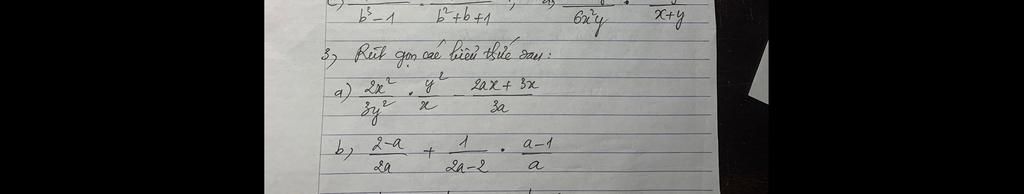 c) / b³-1 · / b²+b+1 ; d) / 6x²y · / x+y
3, Rút gọn các biểu thức sau:
a) 2x²/3y² · y²/x - 2ax+3x/3a
b, 2-a/2a + 1/2a-2 · a-1/a